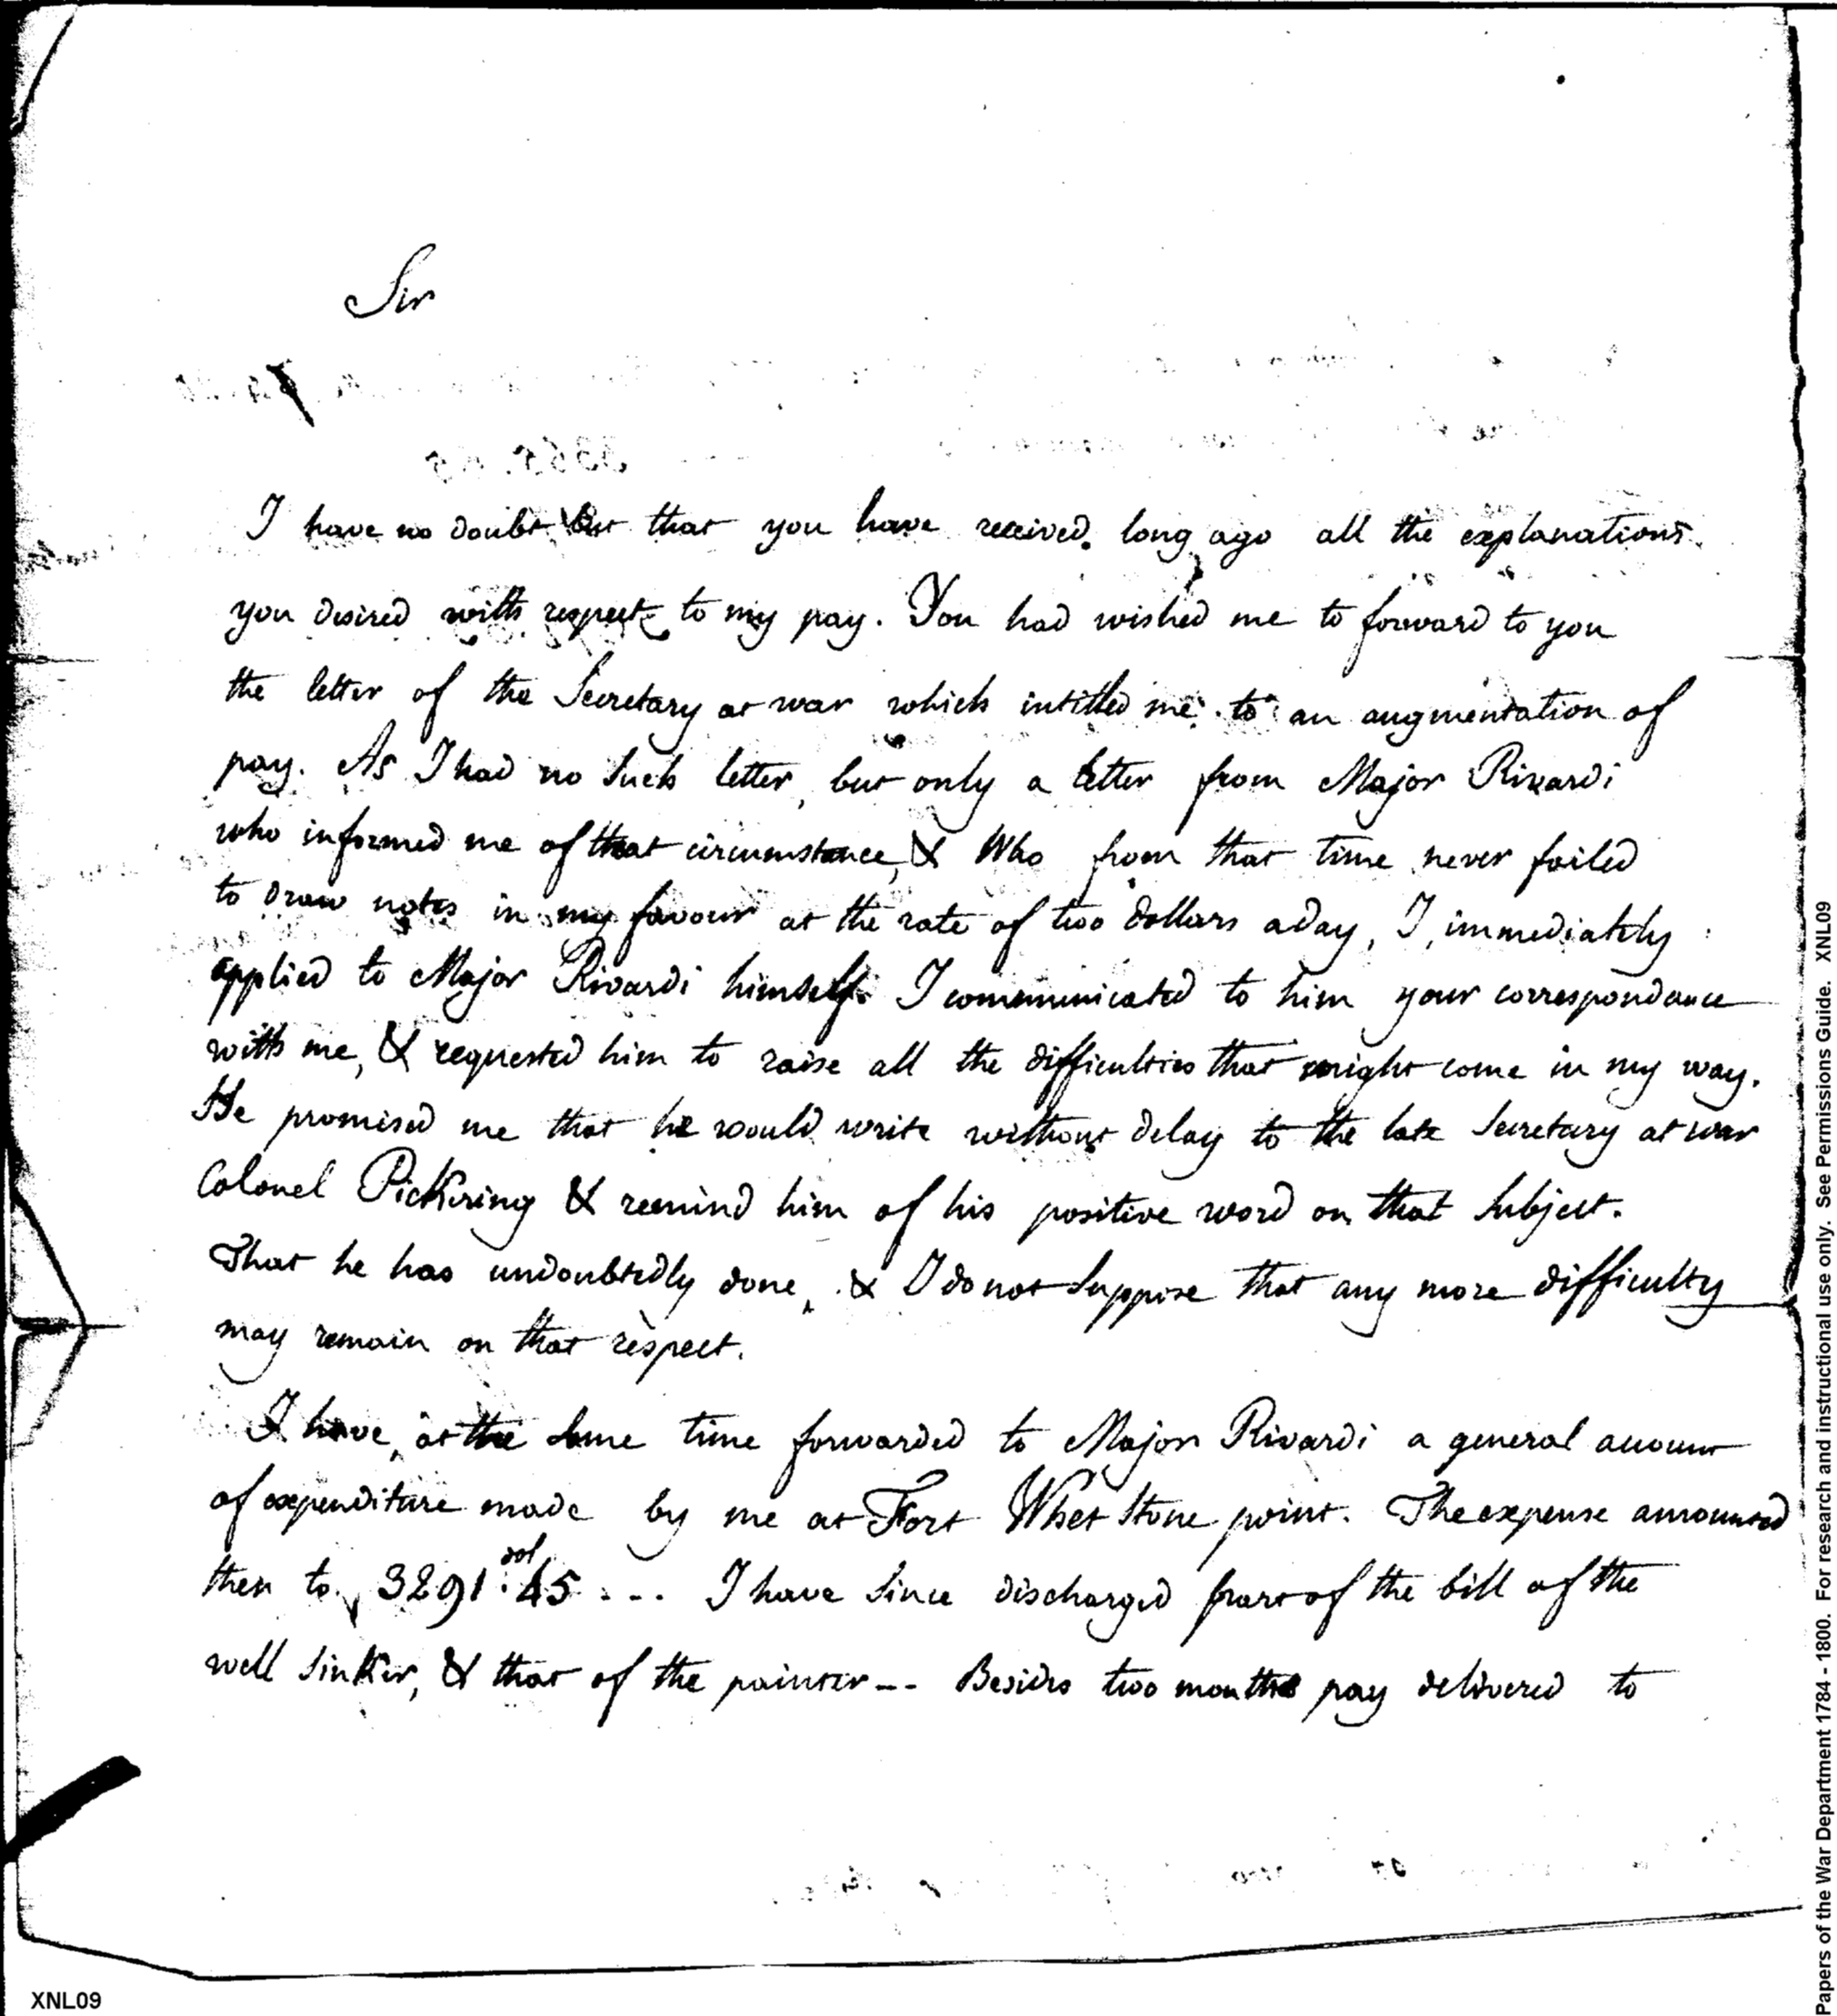 Sir
I have no doubt but that you have received long ago all the explanations
you desired with respect to my pay. You had wished me to forward to you
the letter of the Secretary at war which intitled me to an augmentation of
pay. As I had no such letter, but only a letter from Major Rivardi
who informed me of that circumstance, & Who from that time never failed
to draw notes in my favour at the rate of two dollars a day, I, immediately
applied to Major Rivardi himself. I communicated to him your correspondance
with me, & requested him to raise all the difficulties that might come in my way.
He promised me that he would write without delay to the late Secretary at war
Colonel Pickering & remind him of his positive word on that subject.
That he has undoubtedly done, & I do not suppose that any more difficulty
may remain on that respect.
I have, at the same time forwarded to Major Rivardi a general account
of expenditure made by me at Fort Whet Stone point. The expense amounted
then to 3291 dol. 45 ... I have since discharged part of the bill of the
well sinker, & that of the painter -- Besides two months pay delivered to
XNL09
Papers of the War Department 1784 - 1800. For research and instructional use only. See Permissions Guide. XNL09